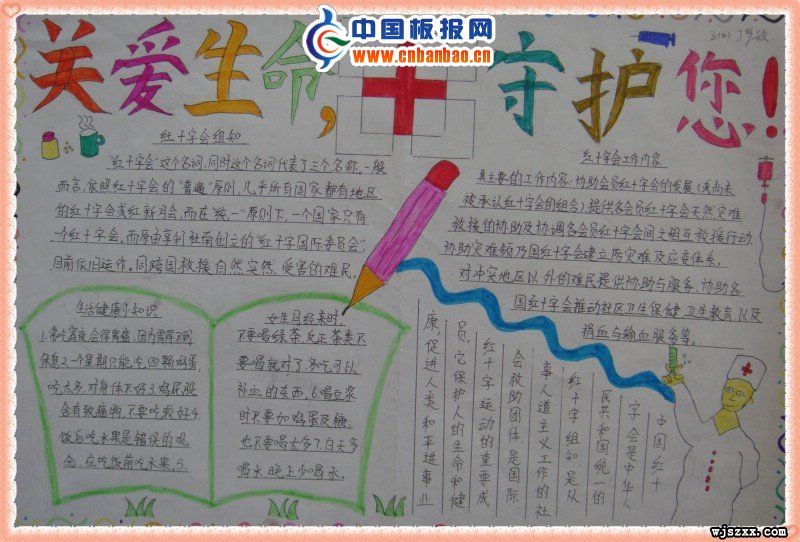 中国板报网
www.cnbanbao.cn
关爱生命,守护您!
红十字会组知
"红十字会"这个名词,同时这个名词代表了三个名称,一般
而言,依照红十字会的"普遍"原则,几乎所有国家都有地区
的红十字会或红新月会,而在"统一"原则下,一个国家只有
一个红十字会,而原由亨利杜南创立的"红十字国际委员会"
目前依旧运作。同跨国救援自然突然、受害的难民。
红十字会工作内容
其主要的工作内容:协助会员红十字会的发展(或尚未
被承认红十字会的组合)提供各会员红十字会天然灾难
救援的协助及协调各会员红十字会间之相互救援行动,
协助灾难频及国红十字会建立防灾难及应变体系,
对冲突地区以外的难民提供协助与服务、协助各
国红十字会推动社区卫生保健、卫生教育以及
捐血与输血服务等。
生活健康小知识
1.常吃宵夜,会得胃癌,因为胃得不到
休息2.一个星期只能吃四颗鸡蛋,
吃太多,对身体不好3.鸡屁股
含有致癌物,不要吃较好4.
饭后吃水果是错误的观
念,应吃饭前吃水果。5.
女生月经来时,
不要喝绿茶,反正茶类不
要喝就对了,多吃可以
补血的东西。6.喝豆浆
时不要加鸡蛋及糖,
也不要喝太多7.白天多
喝水,晚上少喝水,
中国红十
字会是中华人
民共和国统一的
红十字组知,是从
事人道主义工作的社
会救助团体,是国际
红十字运动的重要成
员,它保护人的生命和健
康,促进人类和平进事业
wjszxx.com